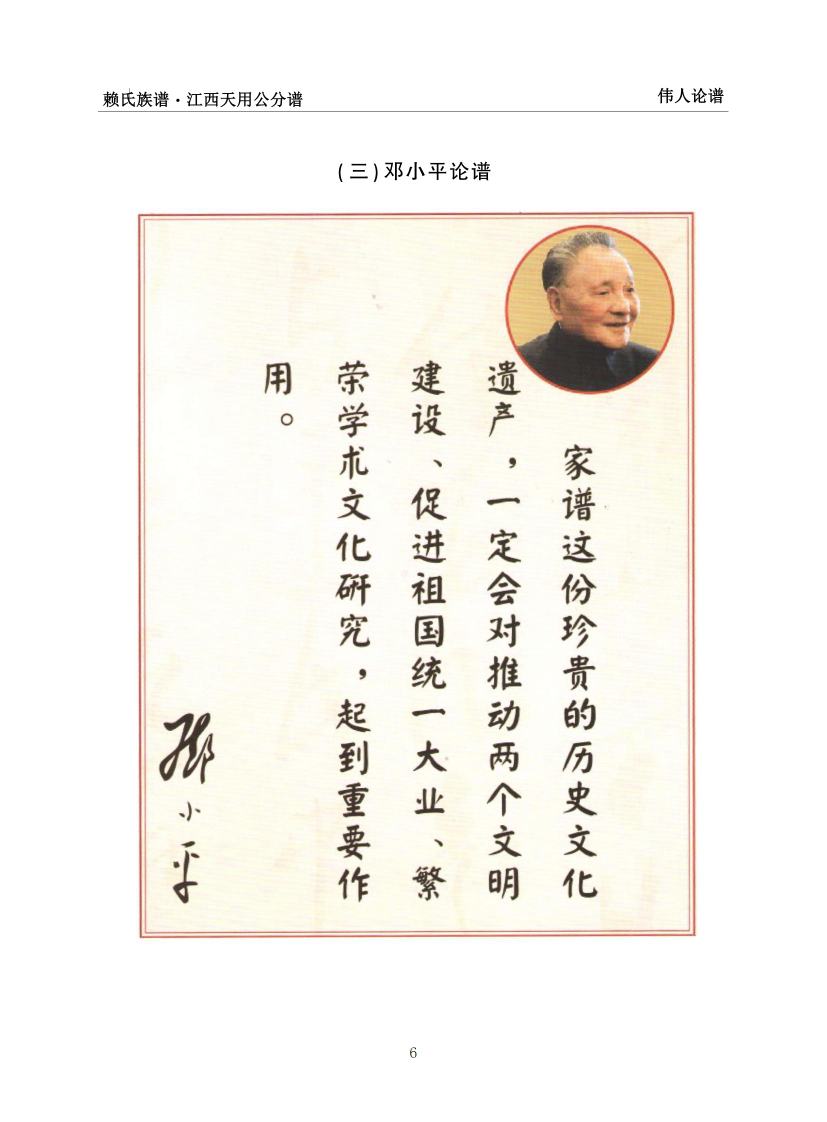 赖氏族谱·江西天用公分谱
伟人论谱
(三)邓小平论谱
家谱这份珍贵的历史文化
遗产，一定会对推动两个文明
建设、促进祖国统一大业、繁
荣学术文化研究，起到重要作
用。
邓小平
6